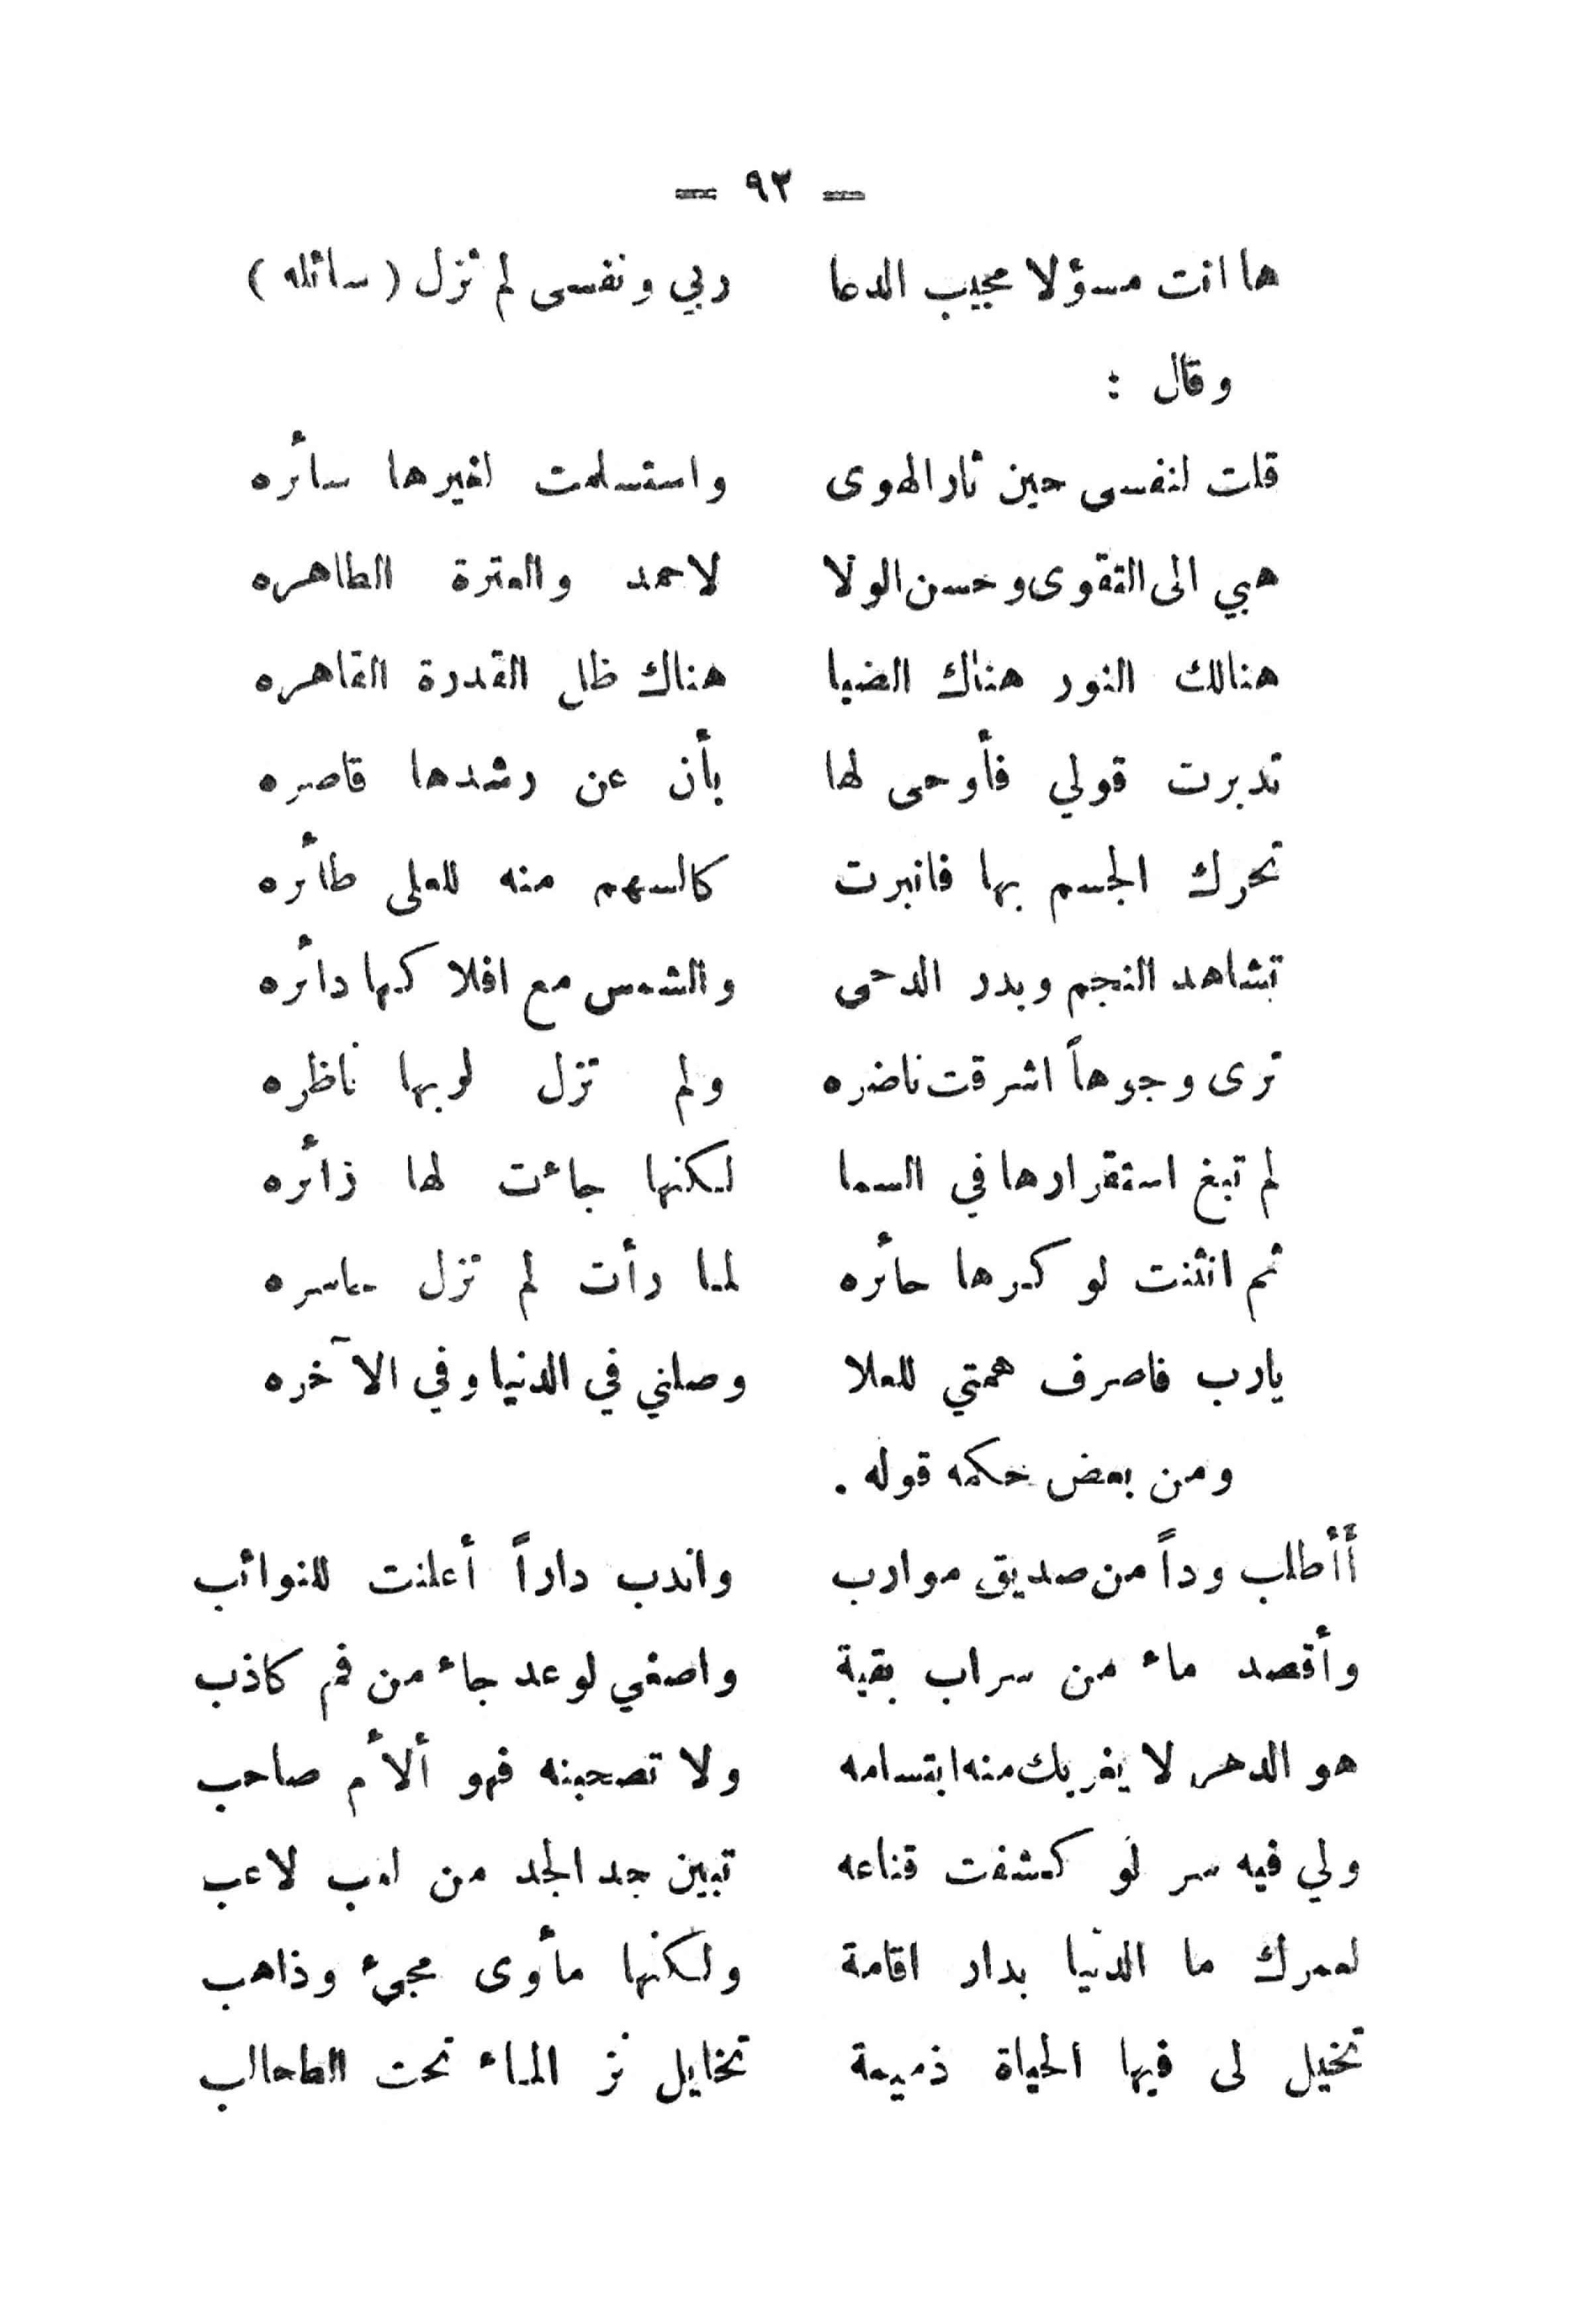 = ٩٢ =
ها انت مسؤلا مجيب الدعا ربي ونفسى لم تزل ( سائله )
وقال :
قلت لنفسى حين ثار الهوى واستسلمت لغيرها سائره
هبي الى التقوى وحسن الولا لاحمد والعترة الطاهره
هنالك النور هناك الضيا هناك ظل القدرة القاهره
تدبرت قولي فأوحى لها بأن عن رشدها قاصره
تحرك الجسم بها فانبرت كالسهم منه للعلى طائره
تشاهد النجم وبدر الدحى والشمس مع افلاكها دائره
ترى وجوهاً اشرقت ناضره ولم تزل لربها ناظره
لم تبغ استقرارها في السما لكنها جاءت لها زائره
ثم انثنت لوكرها حائره لما رأت لم تزل حاسره
يارب فاصرف همتي للعلا وصلني في الدنيا وفي الآخره
ومن بعض حكمه قوله .
أأطلب وداً من صديق موارب واندب داراً أعلنت للنوائب
وأقصد ماء من سراب بقية واصغي لوعد جاء من فم كاذب
هو الدهر لا يغربك منه ابتسامه ولا تصحبنه فهو ألأم صاحب
ولي فيه سر لو كشفت قناعه تبين جد الجد من لعب لاعب
لعمرك ما الدنيا بدار اقامة ولكنها مأوى مجيء وذاهب
تخيل لى فيها الحياة ذميمة تخايل نز الماء تحت الطحالب